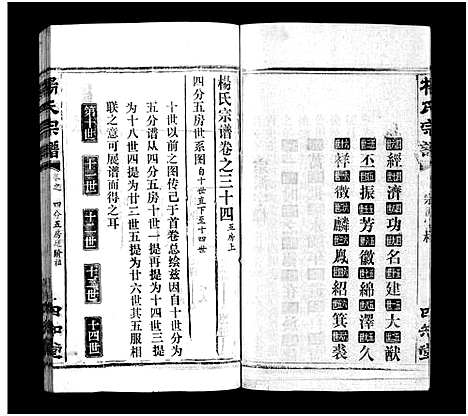 楊氏宗譜
經濟功名建大猷
丕振芳徽綿澤久
祥徵麟鳳紹箕裘
四知堂
楊氏宗譜卷之三十四 五房上
四分五房世系图 自十世直下至十四世
十世以前之图传己于首卷总绘兹因自十世分为
四分谱从四分五房十世一提再提为十四世三提
为十八世四提为廿二世五提为廿六世其五服相
联之意可展谱而得之耳
第十世
十一世
十二世
十三世
十四世
楊氏宗譜
四分五房
四知堂